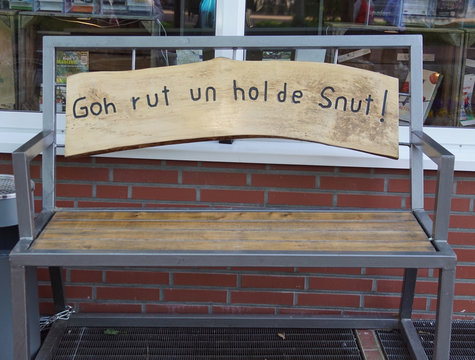 Goh rut un holde Snut!